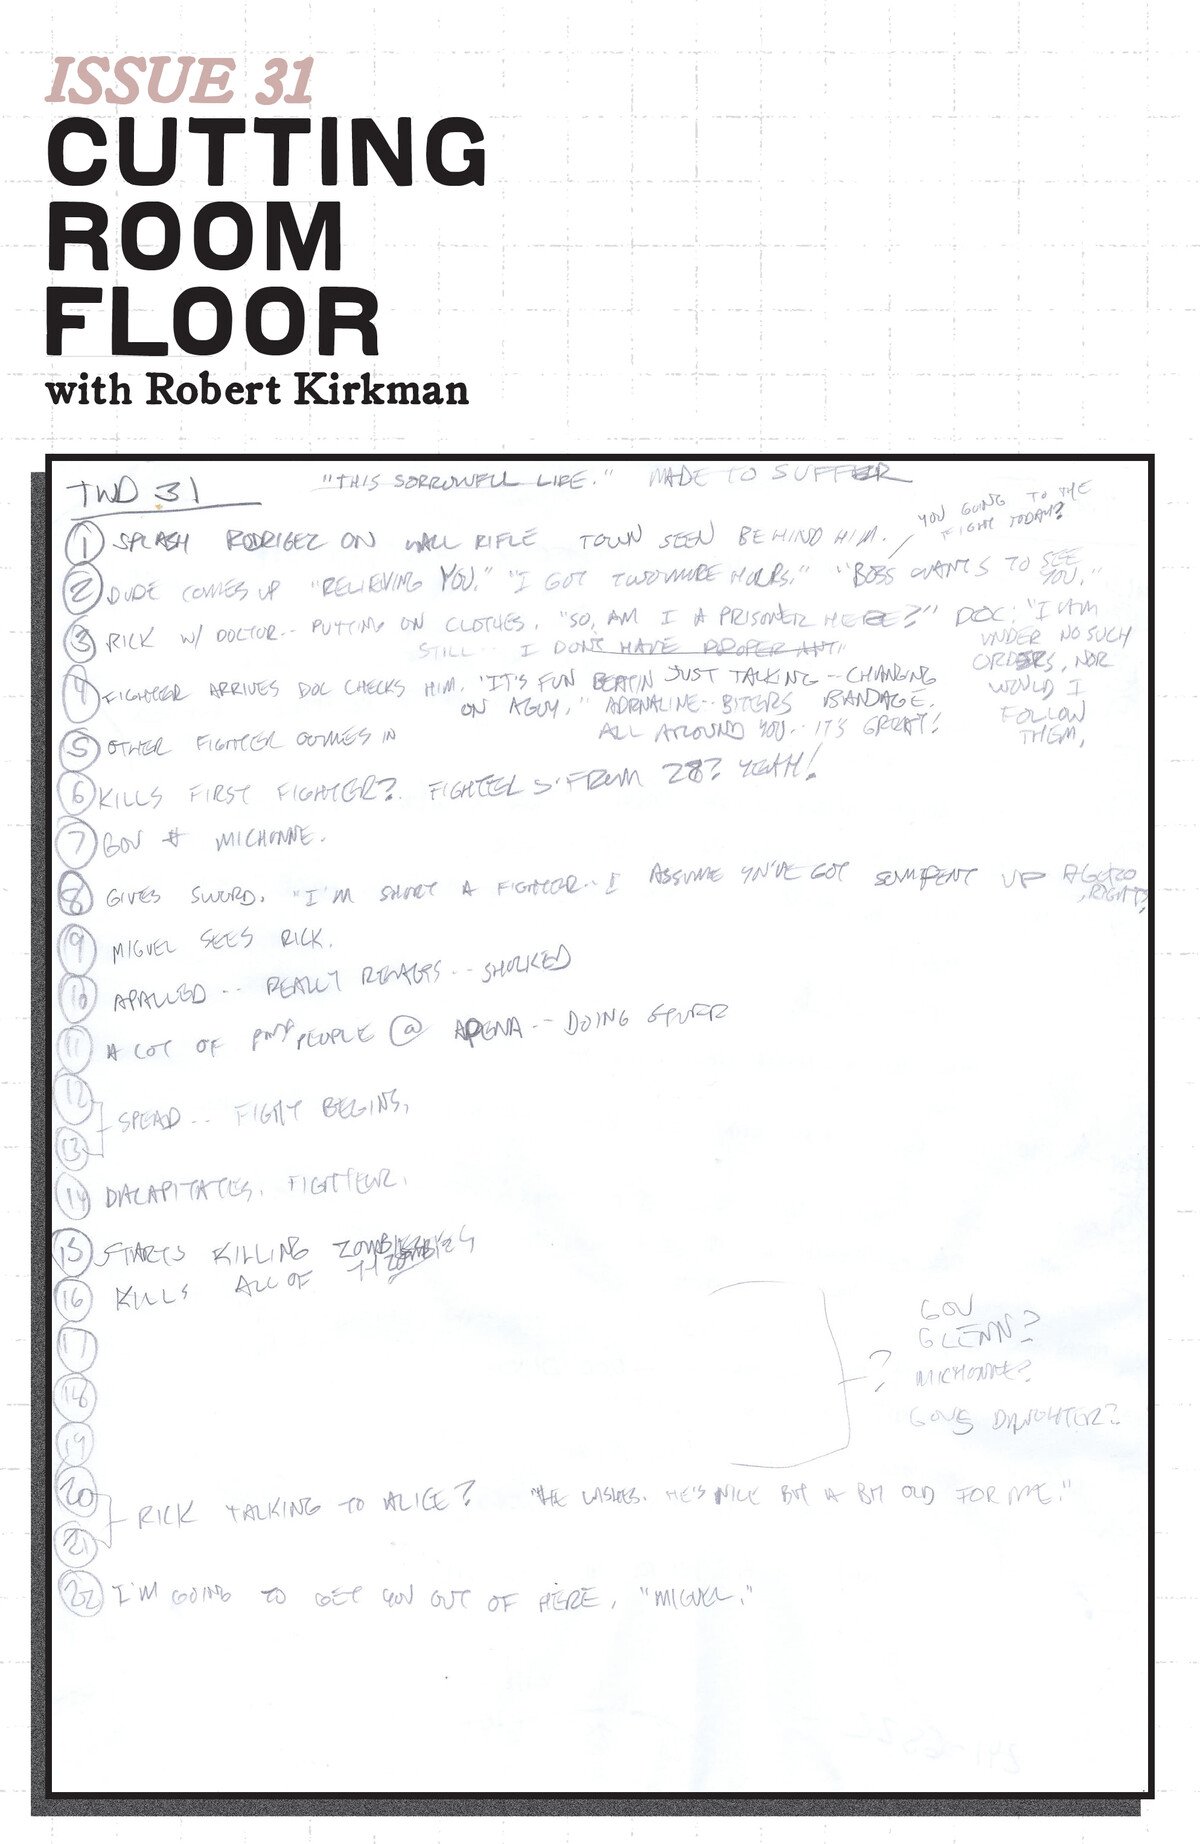 ISSUE 31
CUTTING
ROOM
FLOOR
with Robert Kirkman
TWD 31 "THIS SORROWFUL LIFE." MADE TO SUFFER
YOU GOING TO THE
FIGHT TODAY?
1 SPLASH RODRIGEZ ON WALL RIFLE TOWN SEEN BEHIND HIM.
2 DUDE COMES UP "RELIEVING YOU." "I GOT TWO MORE HOURS." "BOSS WANTS TO SEE
YOU."
3 RICK W/ DOCTOR-- PUTTING ON CLOTHES. "SO, AM I A PRISONER HERE?" DOC: "I AM
UNDER NO SUCH
ORDERS, NOR
WOULD I
FOLLOW
THEM,
STILL-- I DON'T HAVE PROPER ANTI
4 FIGHTER ARRIVES DOC CHECKS HIM. "IT'S FUN BEATIN JUST TALKING-- CHANGING
ON A GUY." ADRNALINE-- BITERS BANDAGE.
ALL AROUND YOU-- IT'S GREAT!
5 OTHER FIGHTER COMES IN
6 KILLS FIRST FIGHTER? FIGHTER S FROM 28? YEAH!
7 GOV & MICHONNE.
8 GIVES SWORD. "I'M SHORT A FIGHTER-- I ASSUME YOU'VE GOT SOME PENT UP
RIGHT?
9 MIGUEL SEES RICK.
10 APALLED-- REALLY SHOCKED
11 A LOT OF PEOPLE @ ARENA-- DOING STUFF
12
13 SPEAD-- FIGHT BEGINS,
14 DACAPITATES. FIGHTER.
15 STARTS KILLING ZOMBIES
16 KILLS ALL OF ZOMBIES
17
18
19
? GOV
GLENN?
MICHONNE?
GOVS DAUGHTER?
20
21 RICK TALKING TO ALICE? "HE WISHES. HE'S NICE BUT A BIT OLD FOR ME."
22 I'M GOING TO GET YOU OUT OF HERE, "MIGUEL."